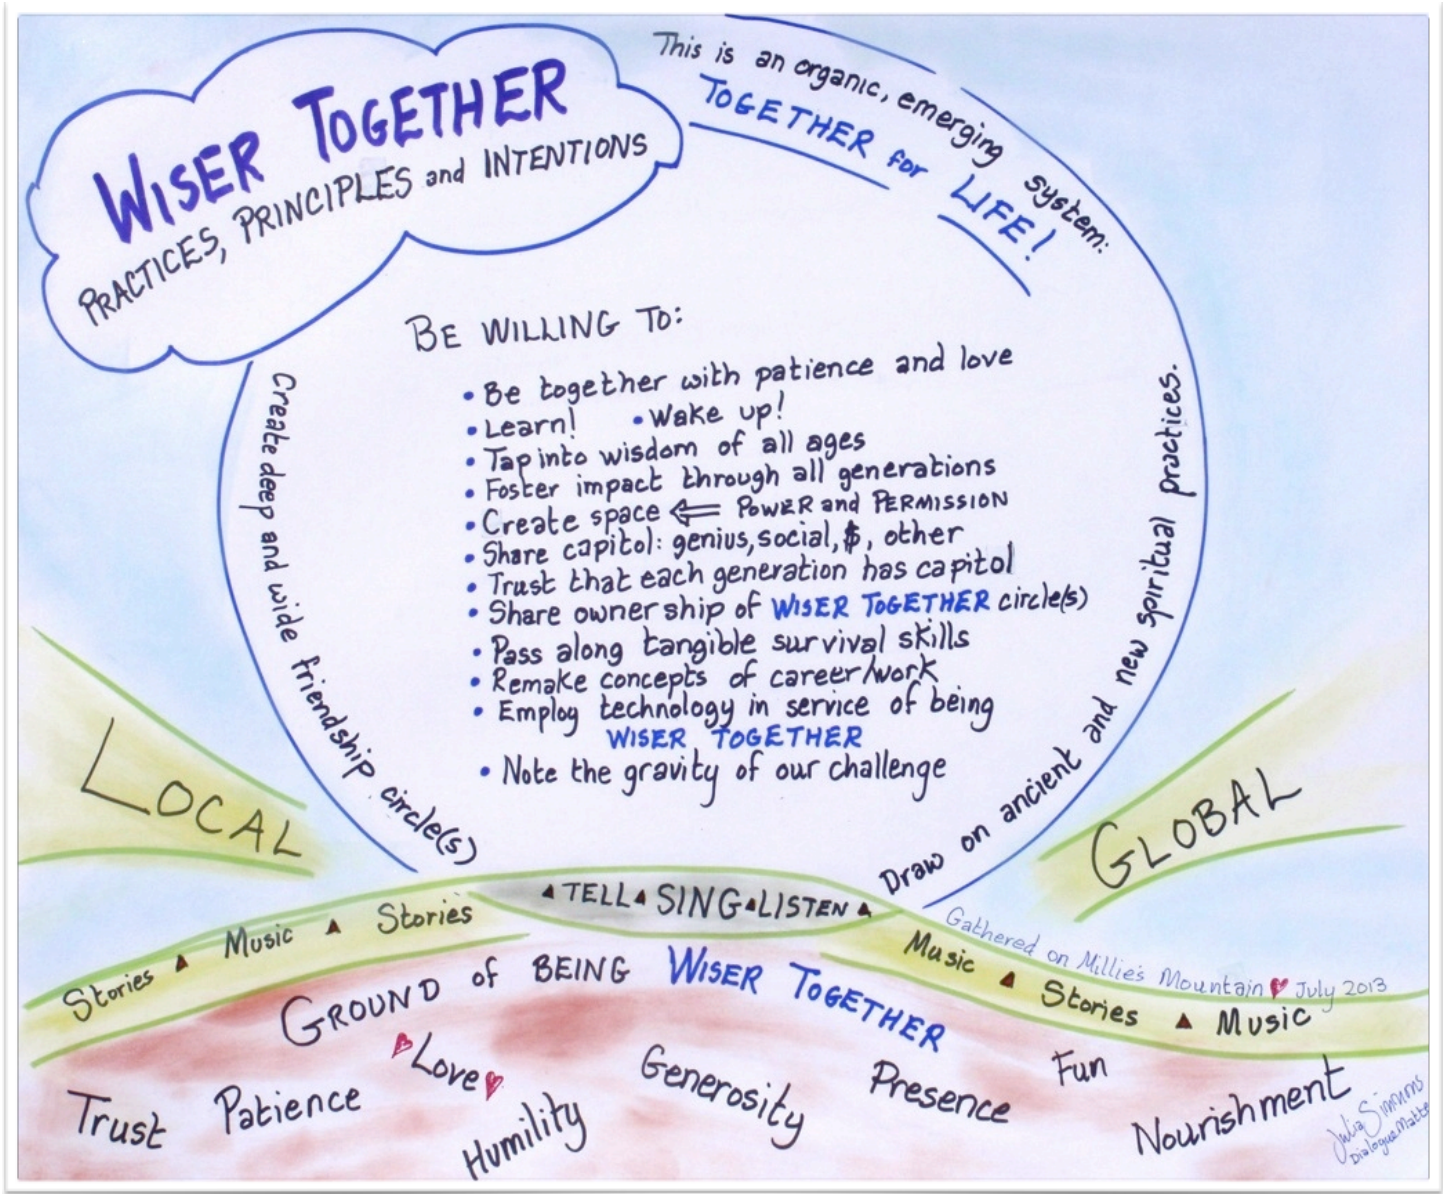 WISER TOGETHER
PRACTICES, PRINCIPLES and INTENTIONS
This is an organic, emerging system:
TOGETHER for LIFE!
BE WILLING TO:
• Be together with patience and love
• Learn! • Wake up!
• Tap into wisdom of all ages
• Foster impact through all generations
• Create space ⇐ POWER and PERMISSION
• Share capitol: genius, social, $, other
• Trust that each generation has capitol
• Share ownership of WISER TOGETHER circle(s)
• Pass along tangible survival skills
• Remake concepts of career/work
• Employ technology in service of being
WISER TOGETHER
• Note the gravity of our challenge
Create deep and wide friendship circle(s)
Draw on ancient and new spiritual practices.
LOCAL
GLOBAL
▲ TELL ▲ SING ▲ LISTEN ▲
Stories ▲ Music ▲ Stories
Music ▲ Stories ▲ Music
Gathered on Millie's Mountain ♥ July 2013
GROUND of BEING WISER TOGETHER
Trust
Patience
♥ Love ♥
Humility
Generosity
Presence
Fun
Nourishment
Julia Simmons